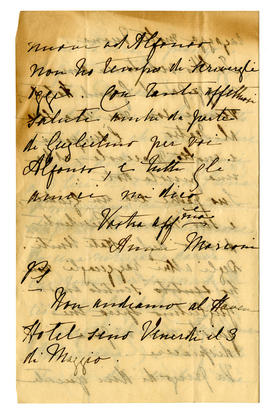 nuove ad Alfonso
non ho tempo di scrivergli
oggi. Con tante affettuosi
saluti anche da parte
di Guglielmo per voi
Alfonso, e tutti gli
amici mi dico
Vostra affma
Annie Marconi
PS
Non andiamo al Haven
Hotel sino Venerdì il 3
di Maggio.